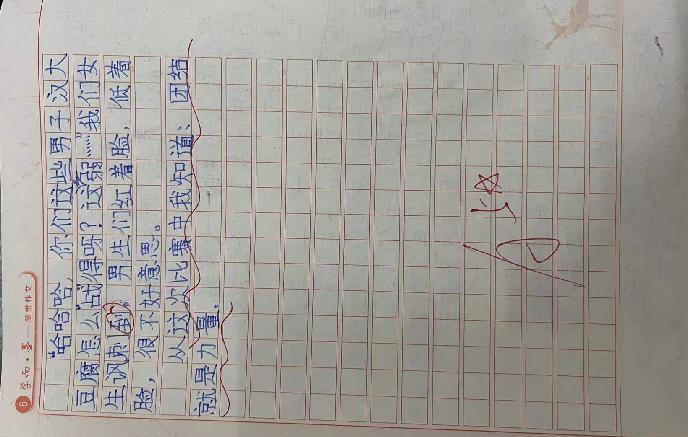 “哈哈哈，你们这些男子汉大
豆腐怎么战得呀？这弱……”我们女
生讽刺到。男生们红着脸，低着
脸，很不好意思。
从这次比赛中我知道：团结
就是力量。
6 学而·美